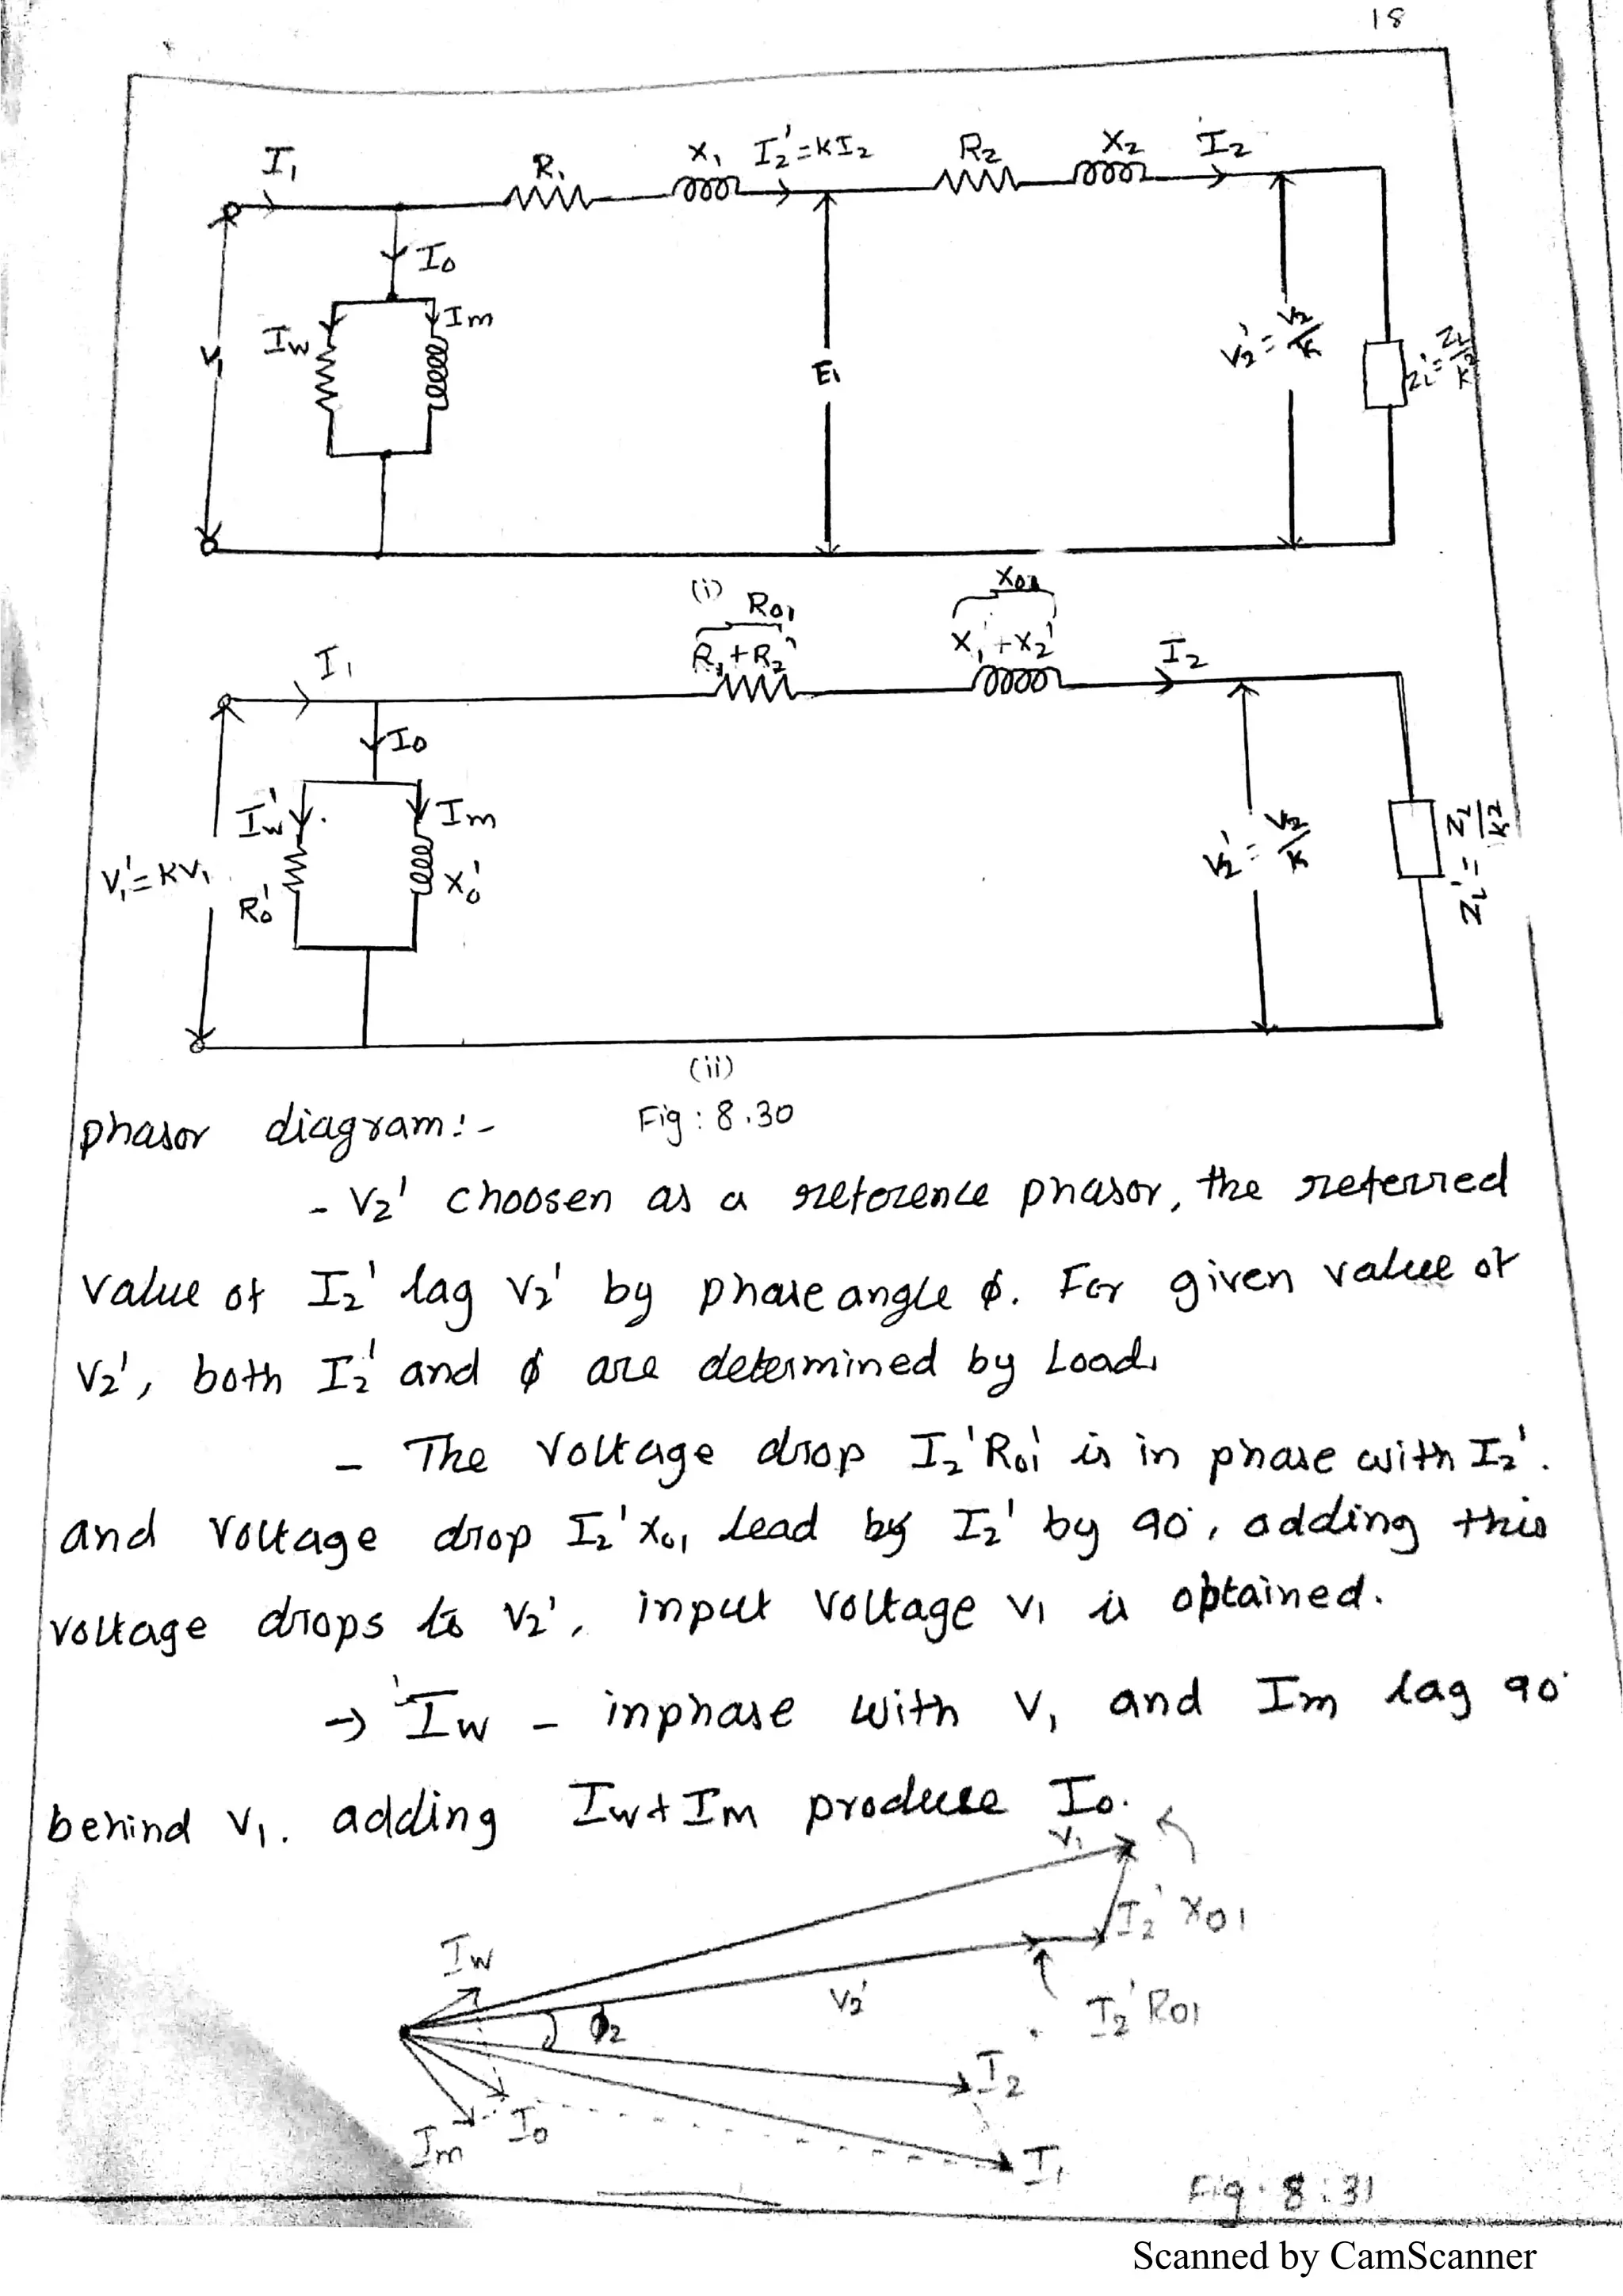 18
I₁ R₁ X₁ I₂'=KI₂ R₂ X₂ I₂
I₀
Iw Im
V₁ E₁ V₂'=V₂/K ZL'=ZL/K²
(i) R₀₁ X₀₁
I₁ R₁+R₂' X₁+X₂' I₂
I₀
Iw' Im
V₁'=KV₁ R₀' X₀' V₂'=V₂/K ZL'=ZL/K²
(ii)
phasor diagram:- Fig: 8.30
- V₂' choosen as a reference phasor, the referred
value of I₂' lag V₂' by phase angle ϕ. For given value of
V₂', both I₂' and ϕ are determined by Load.
- The Voltage drop I₂'R₀₁ is in phase with I₂'.
and voltage drop I₂'X₀₁ lead by I₂' by 90°, adding this
voltage drops to V₂', input voltage V₁ is obtained.
→ Iw - inphase with V₁ and Im lag 90°
behind V₁. adding Iw+Im produce I₀.
V₁
I₂'X₀₁
Iw
V₂'
I₂'R₀₁
ϕ₂
I₂
I₀
Im
I₁
Fig. 8:31
Scanned by CamScanner